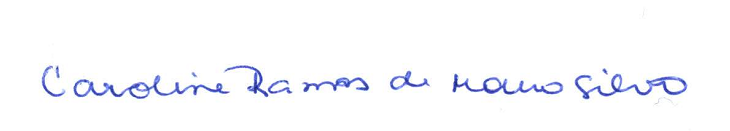 Caroline Ramos de Mouro Silva